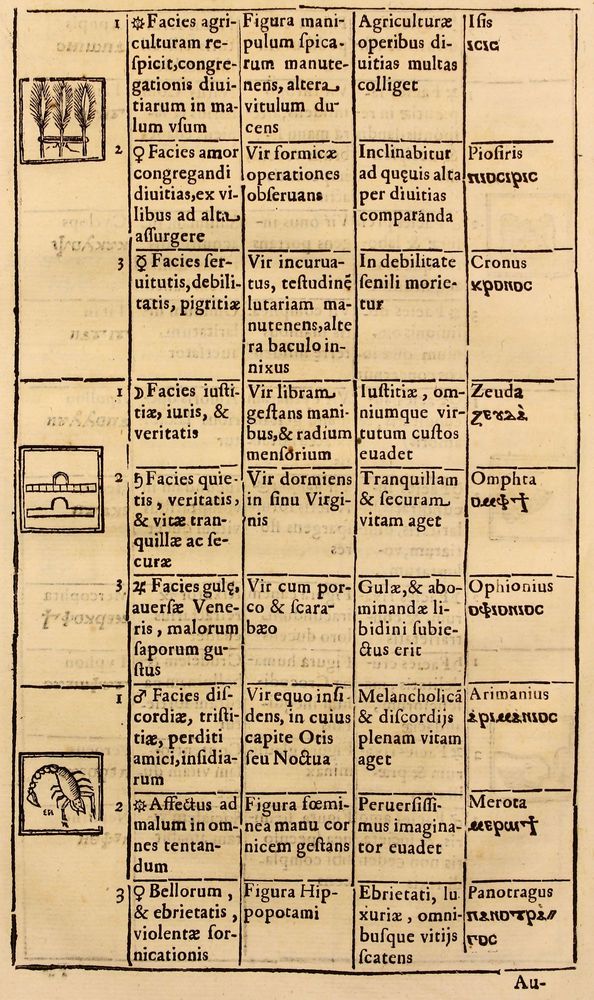 1
☼ Facies agri-
culturam re-
ſpicit, congre-
gationis diui-
tiarum in ma-
lum vſum
Figura mani-
pulum ſpica-
rum manute-
nens, altera
vitulum du-
cens
Agriculturæ
operibus di-
uitias multas
colliget
Iſis
ⲓⲥⲓⲥ
2
♀ Facies amor
congregandi
diuitias, ex vi-
libus ad alta
aſſurgere
Vir formicæ
operationes
obſeruans
Inclinabitur
ad quęuis alta
per diuitias
comparanda
Pioſiris
ⲡⲓⲟⲥⲓⲣⲓⲥ
3
☿ Facies ſer-
uitutis, debili-
tatis, pigritiæ
Vir incurua-
tus, teſtudinę
lutariam ma-
nutenens, alte
ra baculo in-
nixus
In debilitate
ſenili morie-
tur
Cronus
ⲕⲣⲟⲛⲟⲥ
1
☽ Facies iuſti-
tiæ, iuris, &
veritatis
Vir libram
geſtans mani-
bus, & radium
menſorium
Iuſtitiæ, om-
niumque vir-
tutum cuſtos
euadet
Zeuda
ⲍⲉⲩⲇⲁ̀
2
♄ Facies quie-
tis, veritatis,
& vitæ tran-
quillæ ac ſe-
curæ
Vir dormiens
in ſinu Virgi-
nis
Tranquillam
& ſecuram
vitam aget
Omphta
ⲟⲙⲫϯ
3
♃ Facies gulę,
auerſæ Vene-
ris, malorum
ſaporum gu-
ſtus
Vir cum por-
co & ſcara-
bæo
Gulæ, & abo-
minandæ li-
bidini ſubie-
ctus erit
Ophionius
ⲟⲫⲓⲟⲛⲓⲟⲥ
1
♂ Facies diſ-
cordiæ, triſti-
tiæ, perditi
amici, inſidia-
rum
Vir equo inſi-
dens, in cuius
capite Otis
ſeu Noctua
Melancholicã
& diſcordijs
plenam vitam
aget
Arimanius
ⲁ̀ⲣⲓⲙⲁ̀ⲛⲓⲟⲥ
2
☼ Affectus ad
malum in om-
nes tentan-
dum
Figura fœmi-
nea manu cor
nicem geſtans
Peruerſiſſi-
mus imagina-
tor euadet
Merota
ⲙⲉⲣⲱϯ
3
♀ Bellorum,
& ebrietatis,
violentæ for-
nicationis
Figura Hip-
popotami
Ebrietati, lu-
xuriæ, omni-
buſque vitijs
ſcatens
Panotragus
ⲡⲁⲛⲟⲧⲣⲁ̀
ⲅⲟⲥ
Au-